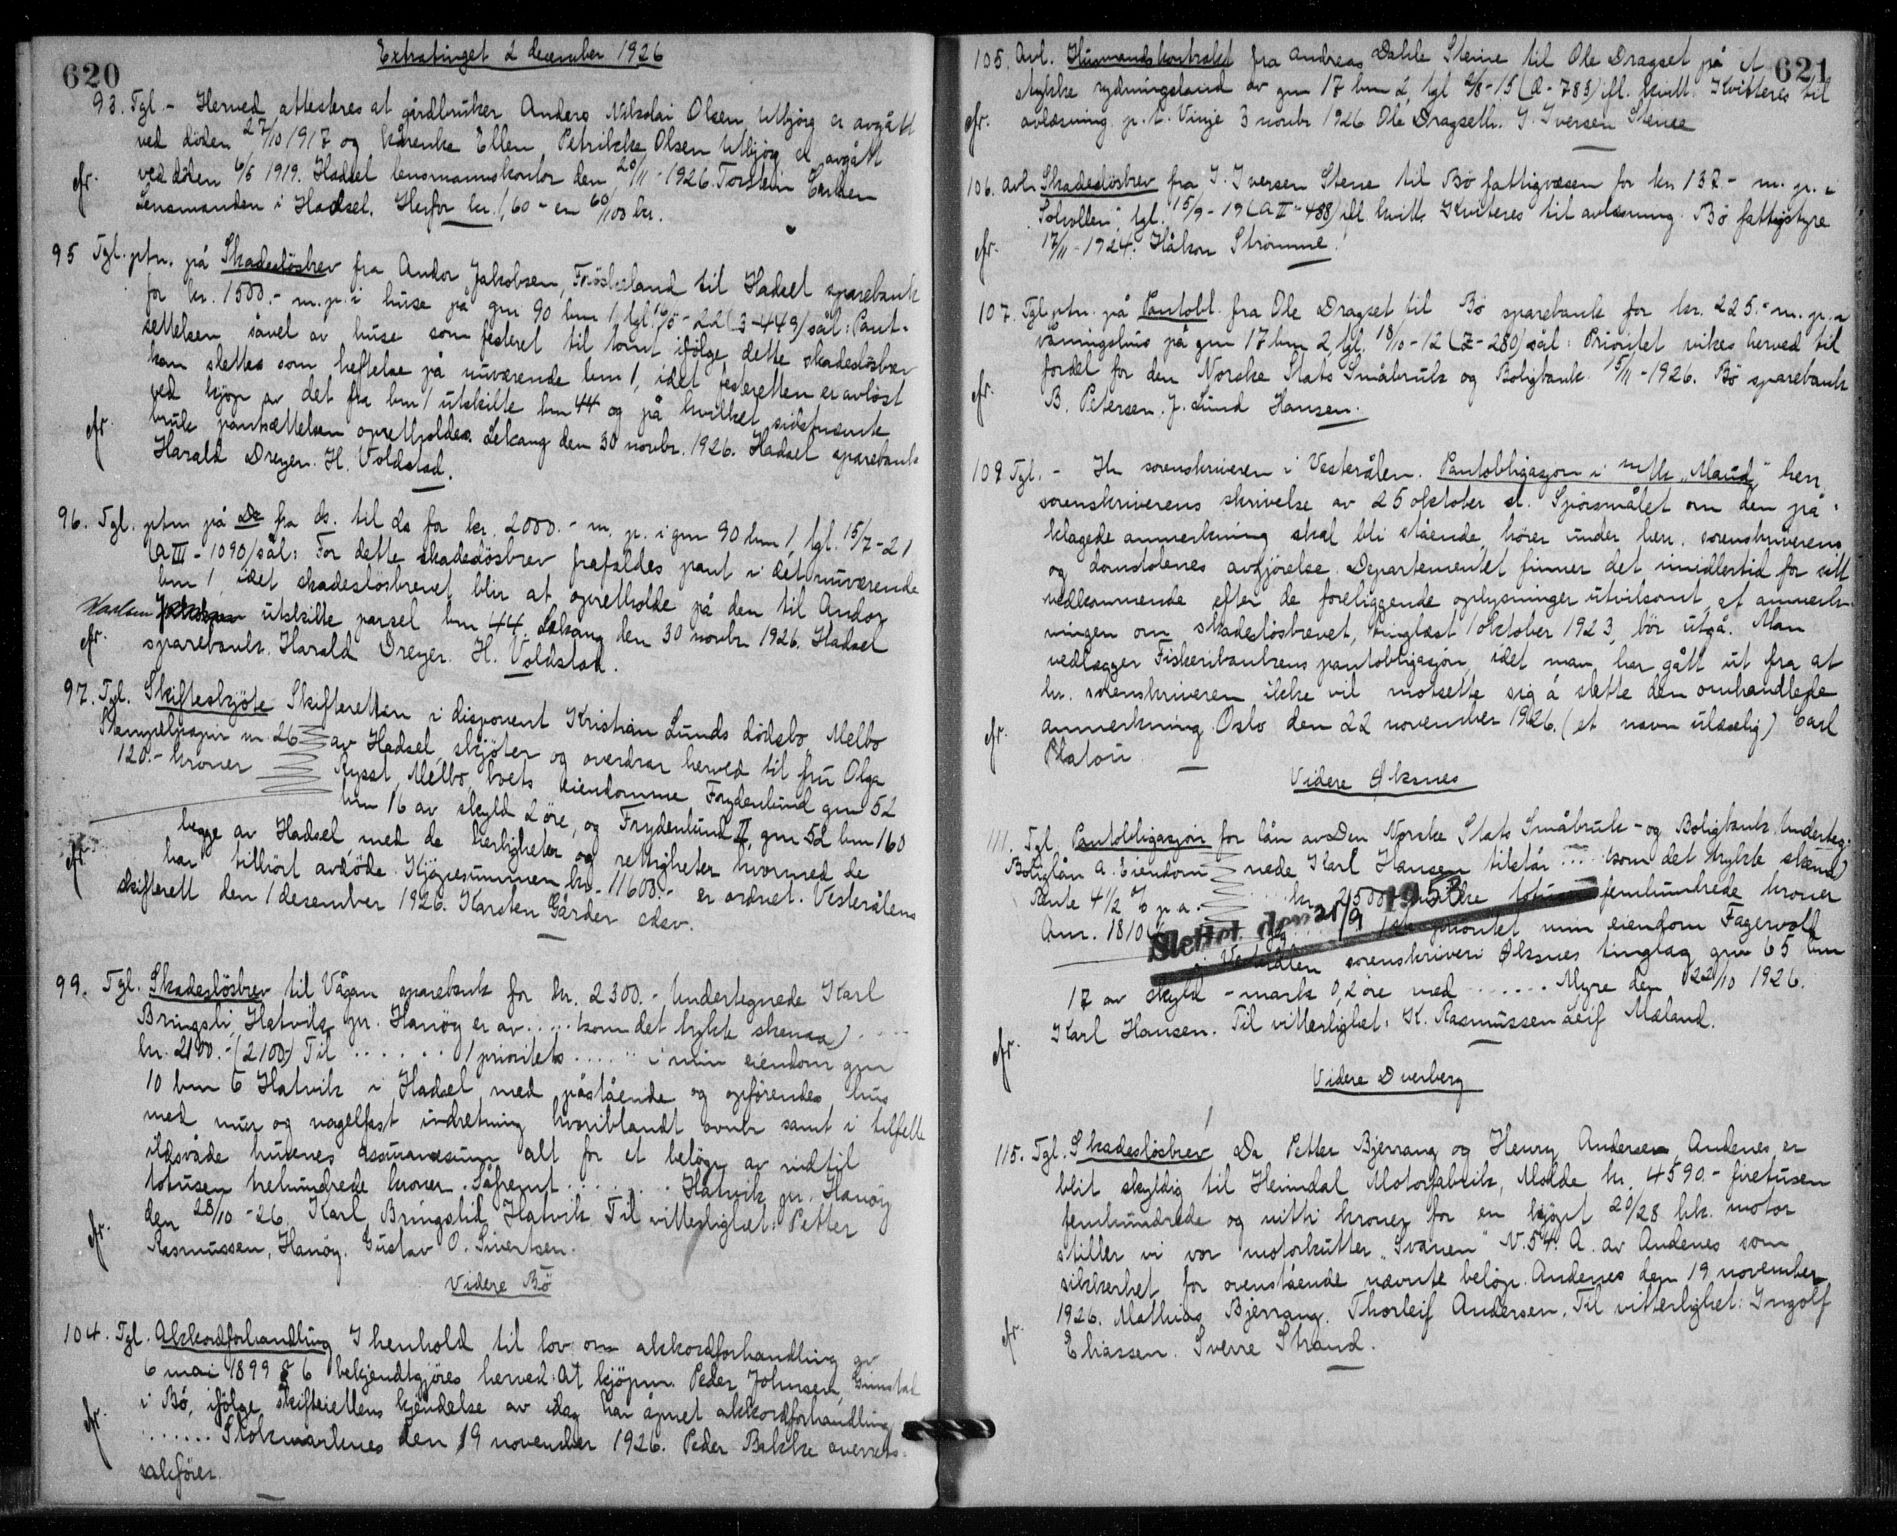 620
Extratinget 2 december 1926
93. Tgl. - Herved attesteres at gårdbruker Anders Nikolai Olsen Utbjörg er avgått
ved döden 27/10 1917 og Ellen Petrikke Olsen Utbjörg er avgått
ved döden 6/5 1919. Hadsel lensmannskontor den 20/11 - 1926. Torstein
cfr. Lensmanden i Hadsel. Herfor kr. 1,60 - en 60/100 kr.
95 Tgl. ptn. på Skadeslösbrev fra Andor Jakobsen, Fröskeland til Hadsel sparebank
for kr. 1500.- m. p. i huse på gnr 90 bnr 1, tgl. 16/5 - 22 (3-449) sål: Pant-
settelsen såvel av huse som festeret til tomt ifölge dette skadeslösbrev
kan slettes som heftelse på nuværende bnr 1, idet festeretten er avlöst
ved kjöp av det fra bnr 1 utskilte bnr 44 og på hvilket sidstnævnte
cfr. bruk pantsættelsen opretholdes. Lekang den 30 novbr. 1926. Hadsel sparebank
Harald Dreyer. H. Voldstad.
96. Tgl. ptn på Do fra ds. til ds for kr. 2000.- m. p. i gnr 90 bnr 1, tgl. 15/7 - 21
(a III - 1090) sål: For dette skadeslösbrev frafaldes pant i det nuværende
bnr 1 idet skadeslösbrevet blir at opretholde på den til Andor
utskilte parsel bnr 44. Lekang den 30 novbr 1926. Hadsel
cfr. sparebank. Harald Dreyer. H. Voldstad.
97. Tgl. Skifteskjöte Skifteretten i disponent Kristian Lunds dödsbo, Melbo
Stempelpapir nr 26 av Hadsel, skjöter og overdrar herved til fru Olga
120.- kroner Rysst, Melbo boets eiendomme Frydenlund gnr 52
bnr 16 av skyld 2 öre, og Frydenlund II, gnr 52 bnr 160
begge av Hadsel med de herligheter og rettigheter hvormed de
cfr. har tilhört avdöde. Kjöpesummen kr. 11600.- er ordnet. Vesterålens
skifterett den 1 desember 1926. Karsten Gårder edsv.
99. Tgl. Skadeslösbrev til Vågan sparebank for kr. 2300.- Undertegnede Karl
Bringsli, Hatvik pr. Hanöy er av ..... (som det trykte skema) ....
kr. 2100.- (2100) Til ....... 1 prioritets ...... i min eiendom gnr
10 bnr 6 Hatvik i Hadsel med påstående og opförendes hus
med mur og nagelfast indretning hvoriblandt ovner samt i tilfelle
ildsvåde husenes assuransesum alt for et belöp av indtil
totusen trehundrede kroner. Såfremt ........ Hatvik pr. Hanöy
den 28/10 - 26. Karl Bringslid, Hatvik. Til vitterlighet: Petter
cfr. Rasmussen, Hanöy. Gustav O. Sivertsen.
Videre Bö
104. Tgl. Akkordforhandling I henhold til lov om akkordforhandling av
6 mai 1899 § 6 bekjendtgjöres herved: At kjöpm. Peder Johnsen, Gimstad
i Bö, ifölge skifterettens kjendelse av idag har åpnet akkordforhandling
cfr. ....... Stokmarknes den 19 november 1926. Peder Bakke overrets-
sakförer.
621
105. Avl. Husmandskontrakt fra Andreas Dahle Steine til Ole Dragset på et
stykke rydningsland av gnr 17 bnr 2, tgl 2/8 - 15 (Æ - 783) ifl. kvitt: Kvitteres til
cfr. avlæsning. p. t. Vinje 3 novbr 1926 Ole Dragseth. I. Iversen Stene
106. Avl. Skadeslösbrev fra I. Iversen Stene til Bö fattigvæsen for kr 137.- m. p. i
"Solvollen", tgl. 15/9 - 19 (a II - 488) ifl kvitt. Kvitteres til avlæsning. Bö fattigstyre
cfr. 17/11 - 1924. Håkon Strömme.
107. Tgl ptn. på Pantobl. fra Ole Dragset til Bö sparebank for kr. 225.- m. p. i
våningshus på gnr 17 bnr 2, tgl. 18/10 - 12 (Z - 280) sål: Prioritet vikes herved til
fordel for den Norske Stats Småbruk og Boligbank. 15/11 - 1926. Bö sparebank
cfr. B. Petersen. J. Lund Hansen.
108 Tgl. - Hr. sorenskriveren i Vesterålen. Pantobligasjon i m/k "Maud". herr
sorenskriverens skrivelse av 25 oktober d. Spörsmålet om den på-
klagede anmerkning skal bli stående, hörer under herr. sorenskriverens
og domstolenes avgjörelse. Departementet finner det imidlertid for sitt
vedkommende efter de foreliggende oplysninger utvilsomt, at anmerk-
ningen om skadeslösbrevet, tinglæst 1 oktober 1923, bör utgå. Man
vedlægger Fiskeribankens pantobligasjon, idet man har gått ut fra at
hr. sorenskriveren ikke vil motsette sig å slette den omhandlede
cfr. anmerkning. Oslo den 22 november 1926. (et navn ulæselig) Carl
Platou
Videre Öksnes
111. Tgl. Pantobligasjon for lån av Den Norske Stats Småbruk- og Boligbank. Underteg-
Boliglån A. Eiendom nede Karl Hansen tilstår .... (som det trykte skema)
Rente 4 1/2 % p a. kr. 2500 skrilte totusen femhundrede kroner
Anr. 1810 1ste prioritet min eiendom Fagervoll
Slettet den 21/9 1953
i Vesterålen sorenskriveri Öksnes tinglag gnr 65 bnr
17 av skyld - mark 0,2 öre med ....... Myre den 22/10 1926.
cfr. Karl Hansen. Til vitterlighet: K. Rasmussen Leif Mæland.
Videre Dverberg
115. Tgl. Skadeslösbrev Da Petter Bjerrang og Henry Andersen, Andenes, er
blit skyldig til Heimdal Motorfabrik, Molde kr. 4590.- firetusen
femhundrede og nitti kroner for en kjöpt 20/28 hk. motor
stiller vi vor motorkutter "Svanen" N. 54. A. av Andenes som
sikkerhet for ovenstående nævnte belöp. Andenes den 19 november
1926. Mathias Bjerrang. Thorleif Andersen. Til vitterlighet: Ingolf
cfr. Eliassen. Sverre Strand.